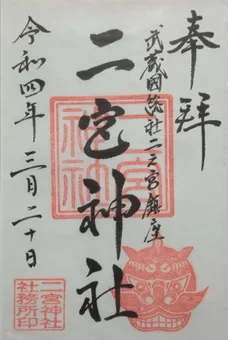 奉拝
武蔵國総社二之宮鎮座
二宮神社
令和四年三月二十日
二宮神社
二宮神社
社務所印